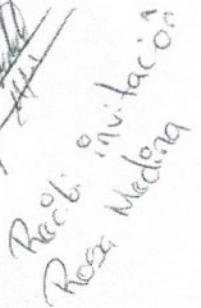 Recibi invitación
Rosa Medina